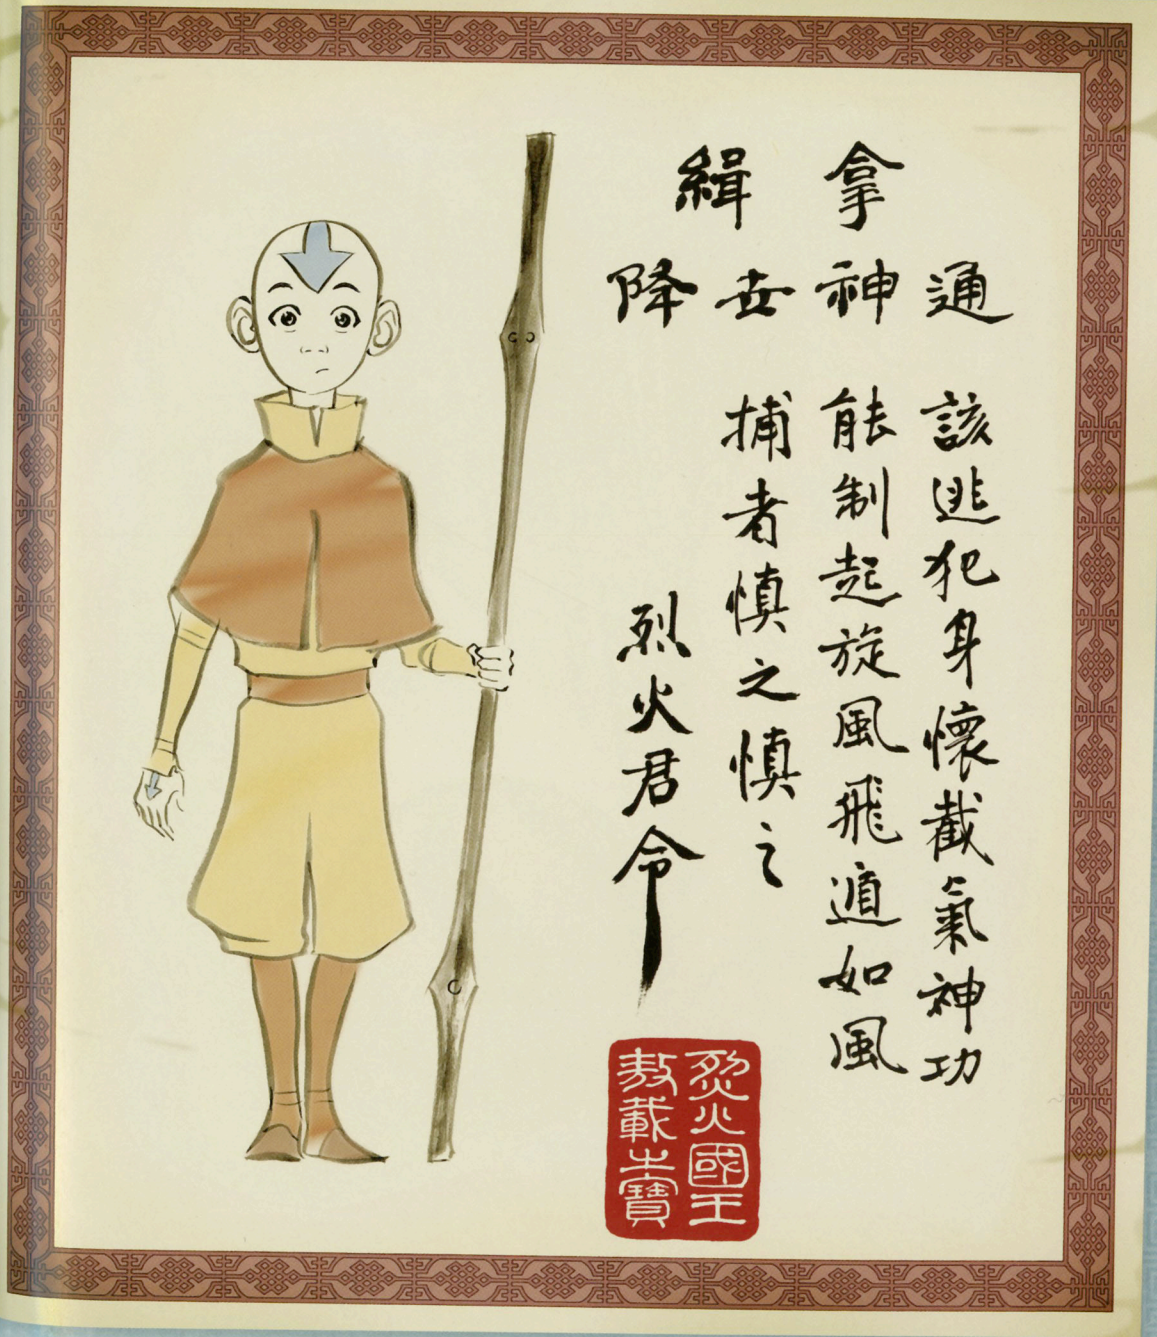 緝拿
降世神通
該逃犯身懷截氣神功
能制起旋風飛遁如風
捕者慎之慎之
烈火君令
烈火國王
敖載之寶